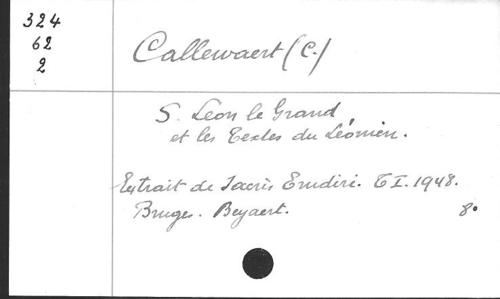 324
62
2
Callewaert (C.)
S. Léon le Grand
et les Textes du Léonien.
Extrait de Sacris Erudiri. T I. 1948.
Bruges. Beyaert. 8°